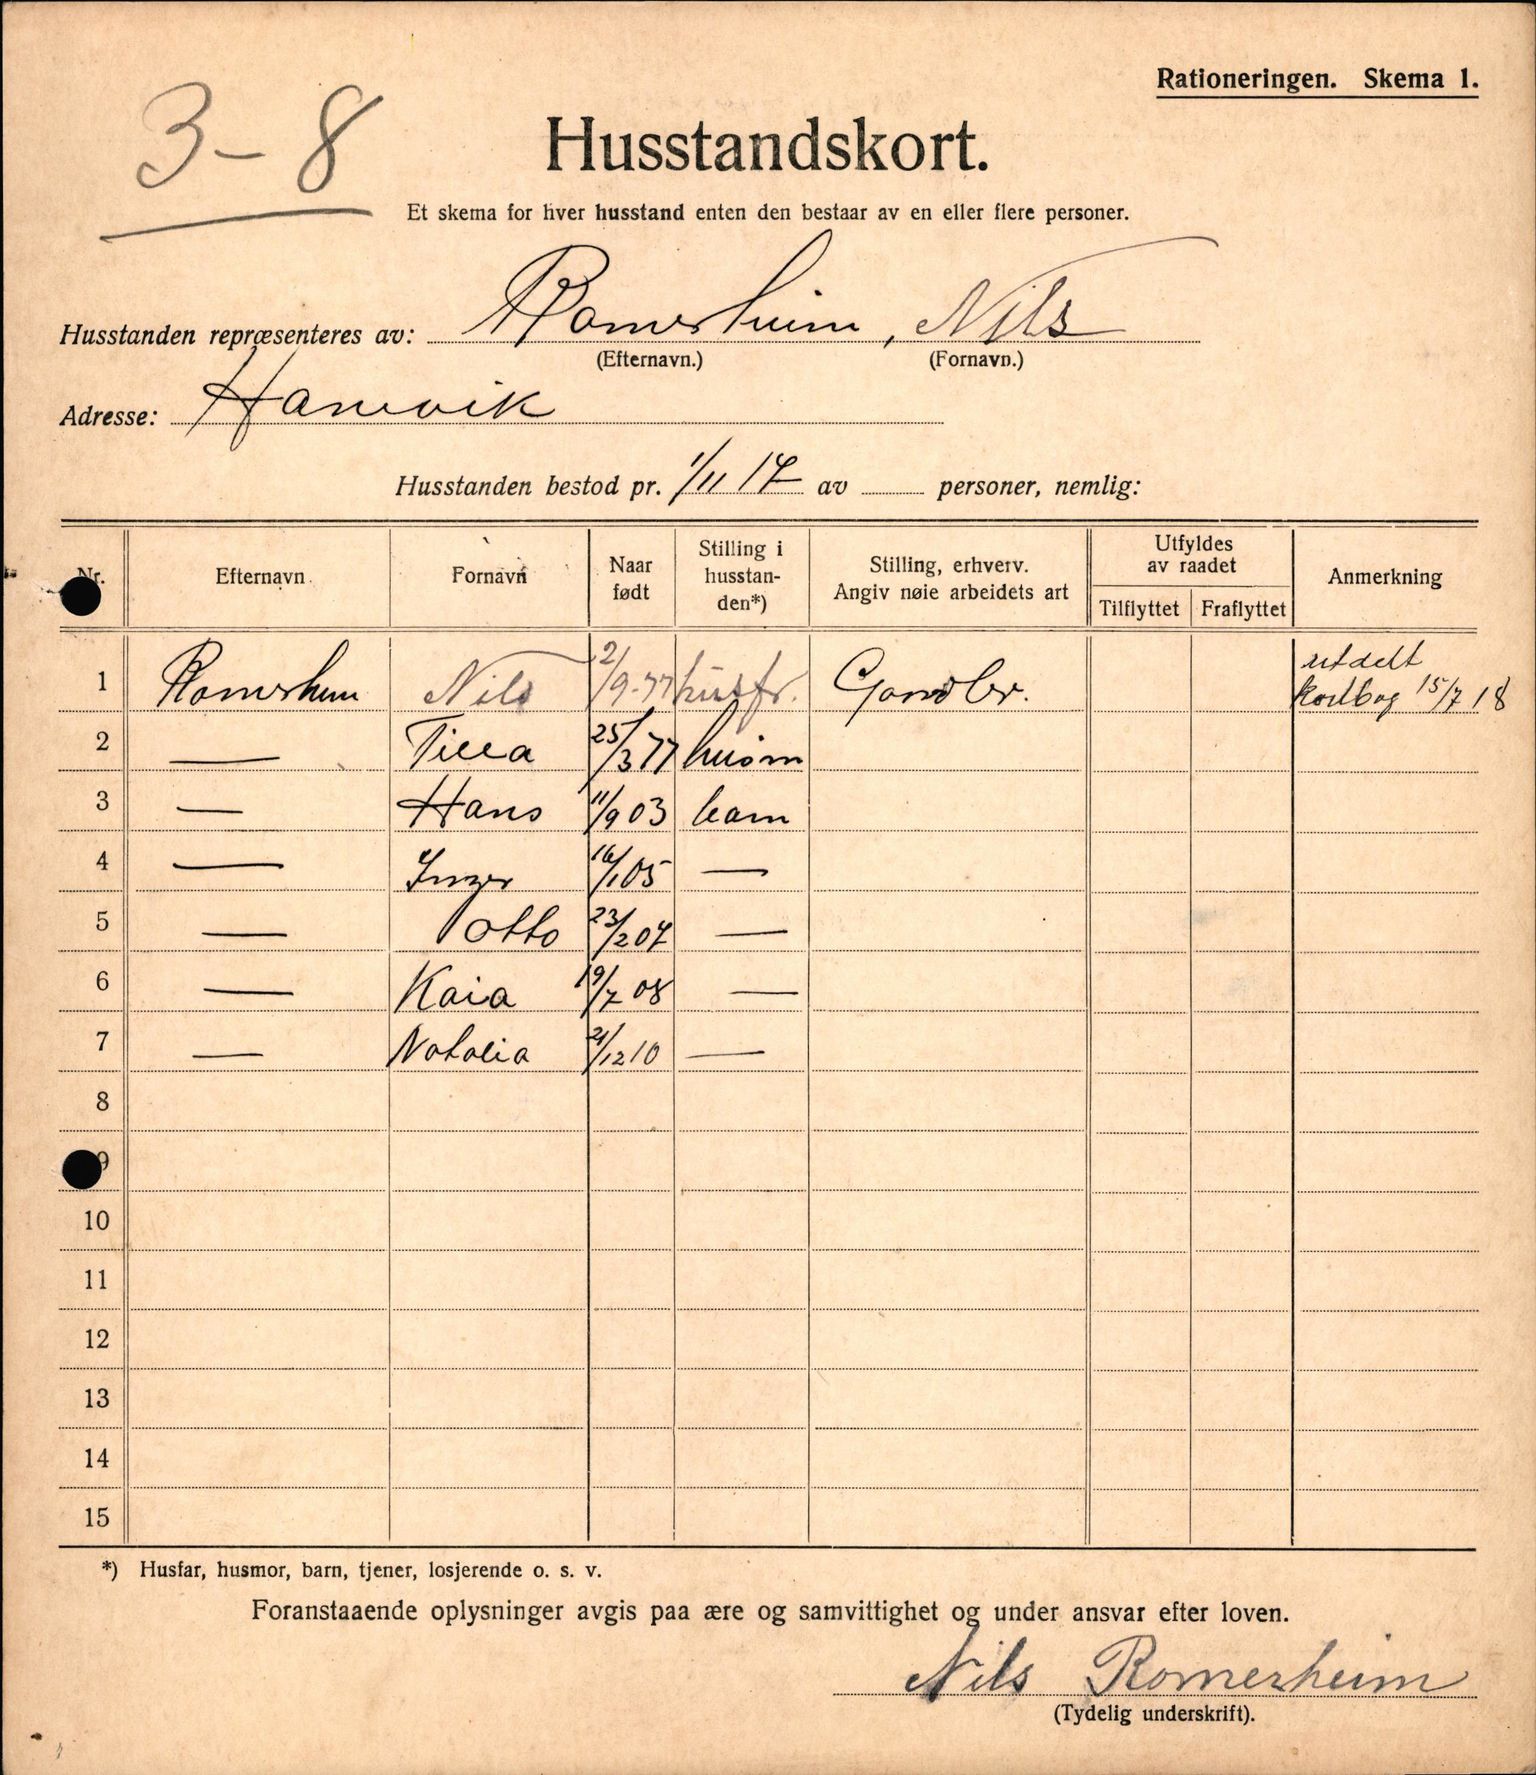 Rationeringen. Skema 1.
3-8
Husstandskort.
Et skema for hver husstand enten den bestaar av en eller flere personer.
Husstanden repræsenteres av: Romerheim, Nils
(Efternavn.) (Fornavn.)
Adresse:
Husstanden bestod pr. 1/11 17 av personer, nemlig:
Nr. Efternavn Fornavn Naar født Stilling i husstan-den*) Stilling, erhverv. Angiv nøie arbeidets art Utfyldes av raadet Tilflyttet Fraflyttet Anmerkning
1 Romerheim Nils 2/9-77 husfr. utdelt kortbog 15/7 18
2 — Tilla 25/3 77 husm
3 — Hans 11/9 03 barn
4 — Inger 16/1 05 —
5 — Otto 23/2 07 —
6 — Kaia 19/7 08 —
7 — Natalia 21/12 10 —
8
9
10
11
12
13
14
15
*) Husfar, husmor, barn, tjener, losjerende o. s. v.
Foranstaaende oplysninger avgis paa ære og samvittighet og under ansvar efter loven.
Nils Romerheim
(Tydelig underskrift).